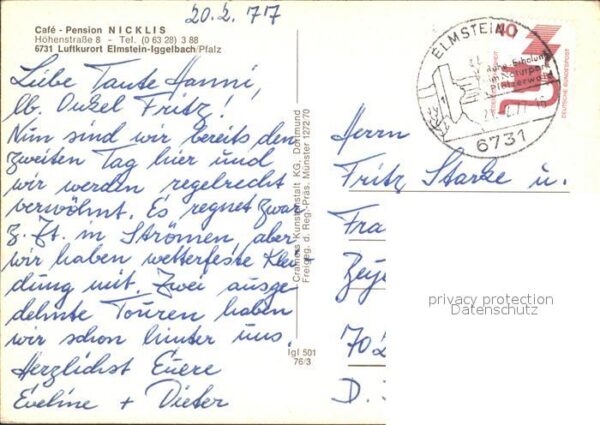 20.2.77
Café - Pension NICKLIS
Höhenstraße 8 - Tel. (0 63 28) 3 88
6731 Luftkurort Elmstein-Iggelbach/Pfalz
Liebe Tante Hanni,
lb. Onkel Fritz!
Nun sind wir bereits den
zweiten Tag hier und
wir werden regelrecht
verwöhnt. Es regnet zwar
z. Zt. in Strömen, aber
wir haben wetterfeste Klei
dung mit. Zwei ausge
dehnte Touren haben
wir schon hinter uns.
Herzlichst Euere
Eveline + Dieter
Cramers Kunstanstalt KG, Dortmund
Freigeg. d. Reg.-Präs. Münster 1272/70
Igl 501
76/3
ELMSTEIN
Ruhe Erholung
im Naturpark
Pfälzerwald
6731
40
DEUTSCHE BUNDESPOST
Herrn
Fritz Starke u.
Fra
702
D.
privacy protection
Datenschutz